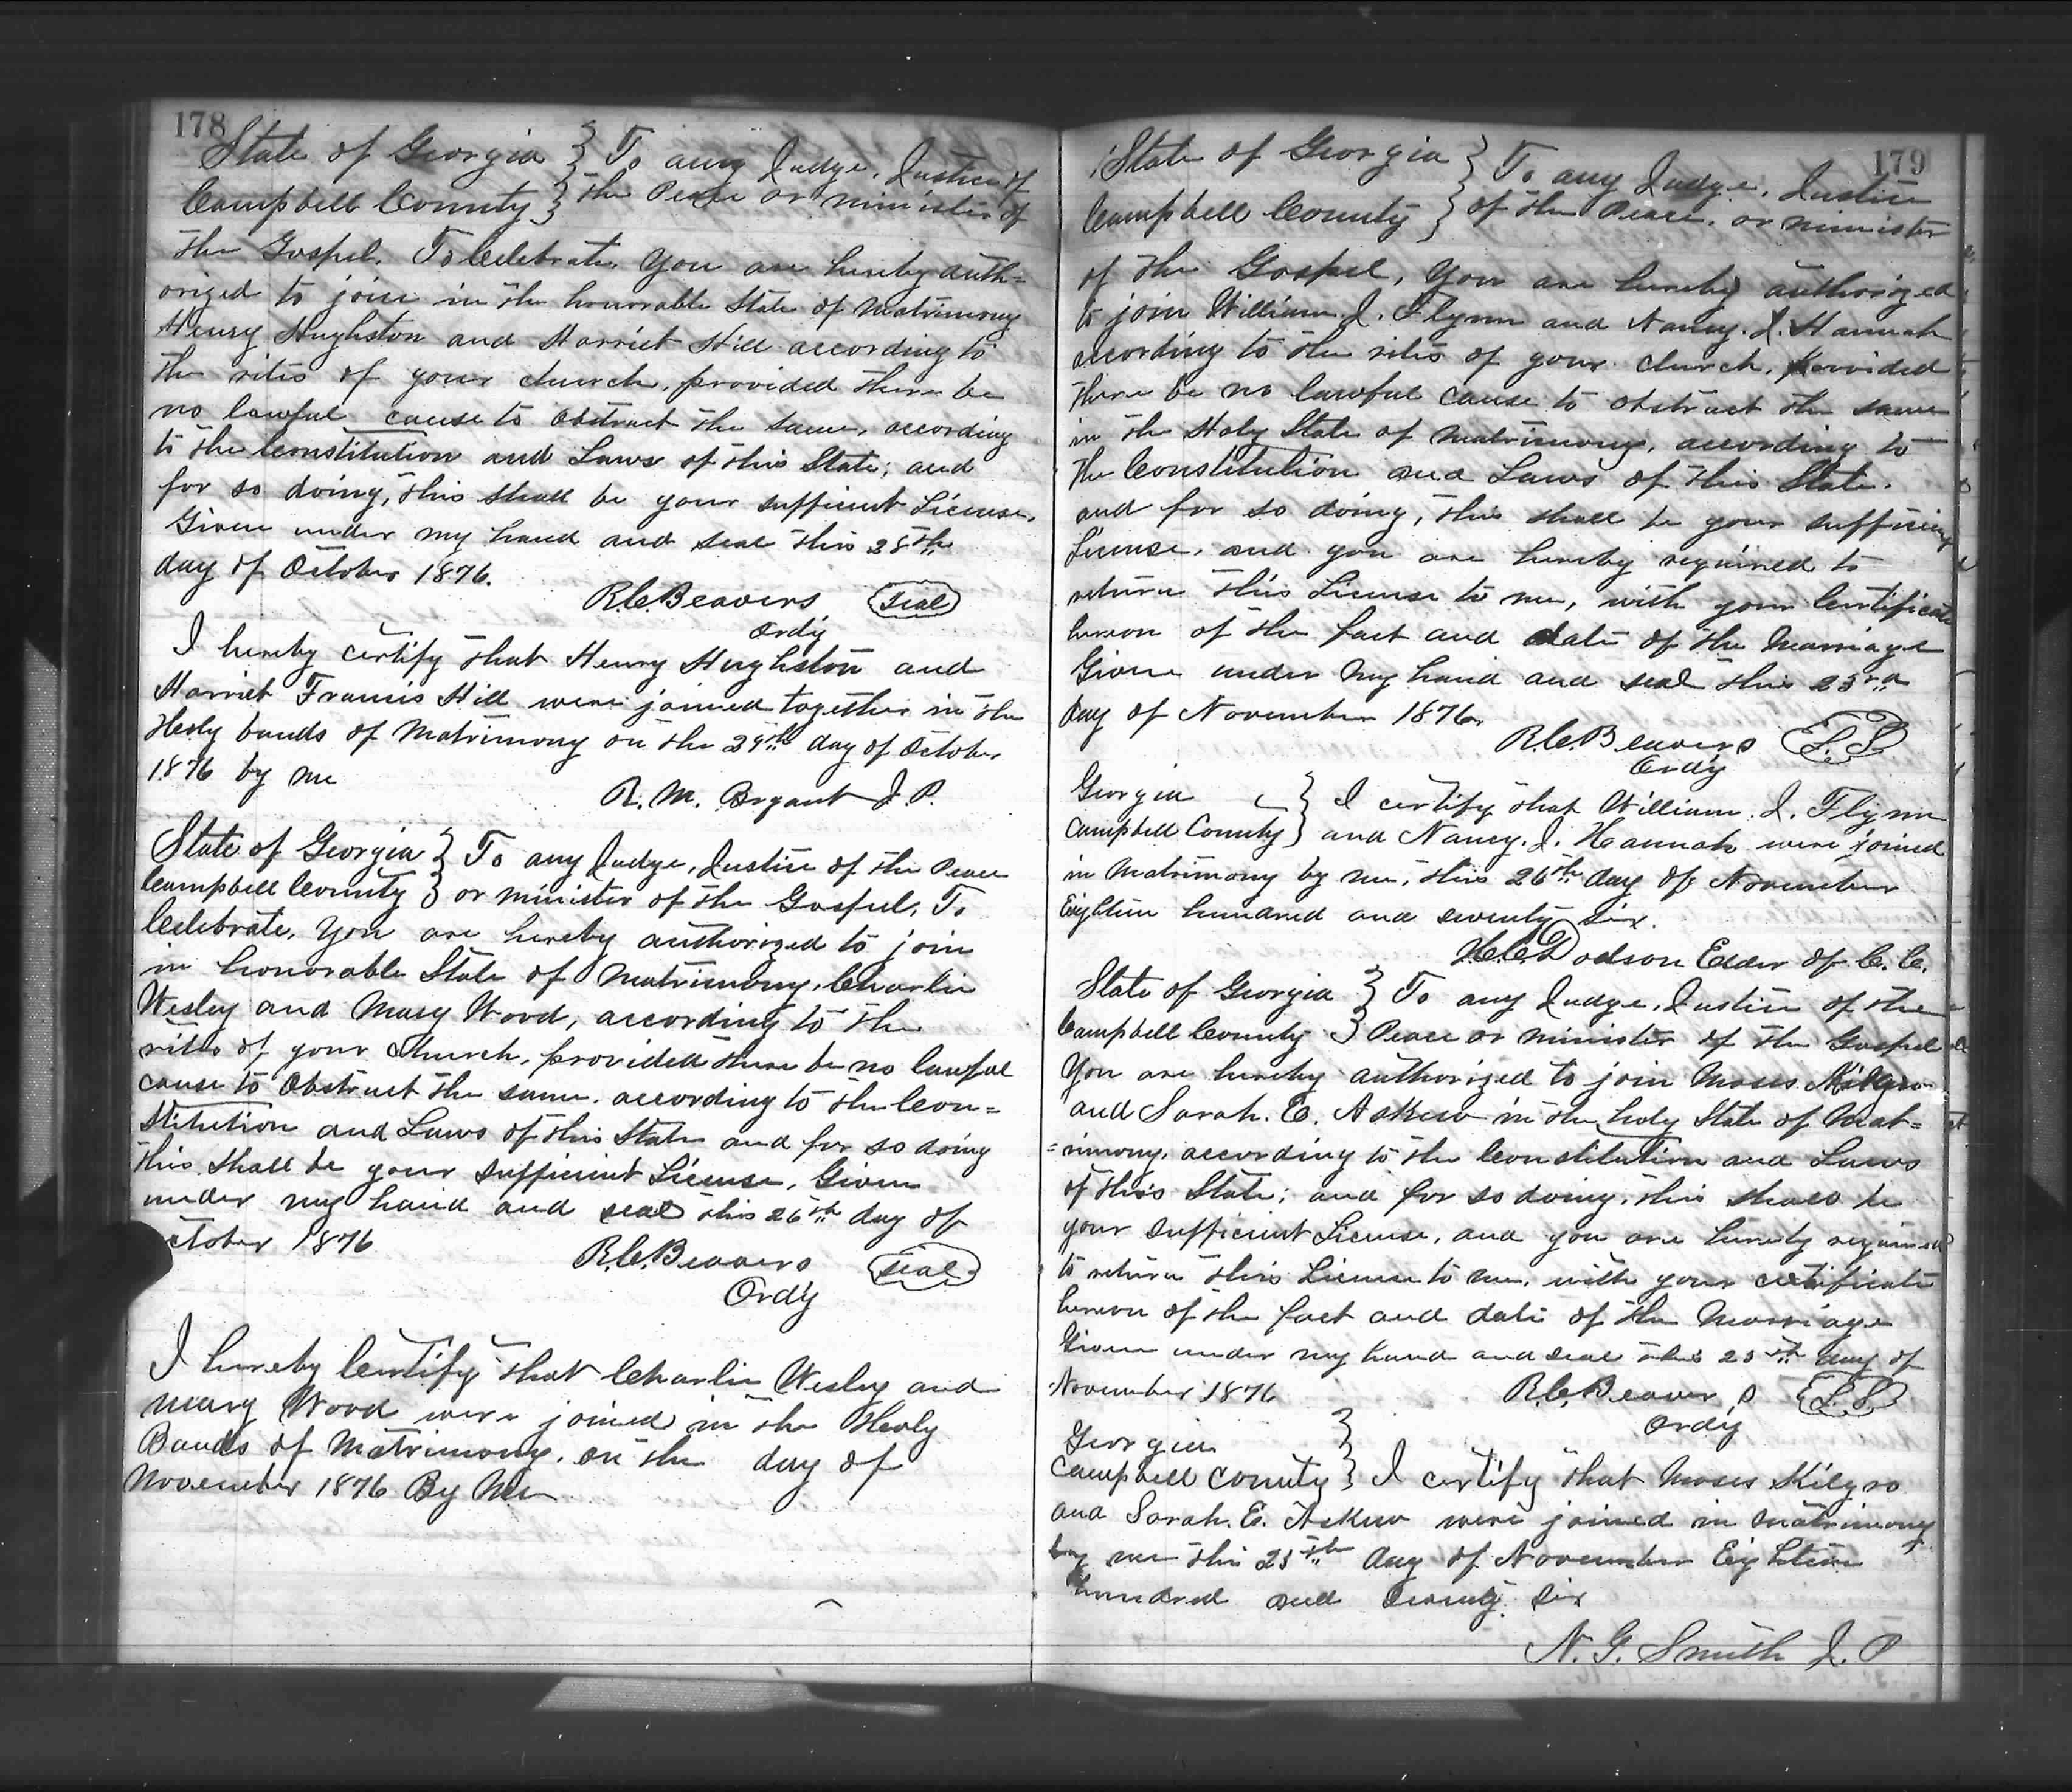 178
State of Georgia } To any Judge, Justice of
Campbell County } the Peace or minister of
the Gospel. To Celebrate, You are hereby auth=
orized to join in the honorable State of Matrimony
Henry Hughston and Harriet Hill according to
the rites of your church, provided there be
no lawful cause to obstruct the same, according
to the Constitution and Laws of this State; and
for so doing, this shall be your sufficient License.
Given under my hand and seal this 28th
day of October 1876.
R.C. Beavers Seal
Ord'y
I hereby certify that Henry Hughston and
Harriet Francis Hill were joined together in the
Holy bands of Matrimony on the 29th day of October
1876 by me
R. M. Bryant J. P.
State of Georgia } To any Judge, Justice of the Peace
Campbell County } or minister of the Gospel, To
Celebrate, You are hereby authorized to join
in honorable State of Matrimony, Charlie
Wesley and Mary Wood, according to the
rites of your Church, provided there be no lawful
cause to Obstruct the same, according to the Con=
stitution and Laws of this State and for so doing
this shall be your sufficient License, Given
under my hand and seal this 26th day of
October 1876
R.C. Beavers Seal
Ord'y
I hereby Certify that Charlie Wesley and
Mary Wood were joined in the Holy
Bands of Matrimony, on the day of
November 1876 By Me
179
State of Georgia } To any Judge, Justice
Campbell County } of the Peace, or minister
of the Gospel, You are hereby authorized
to join William J. Flynn and Nancy. J. Hannah
according to the rites of your church, provided
there be no lawful cause to obstruct the same
in the Holy State of Matrimony, according to
the Constitution and Laws of this State.
and for so doing, this shall be your sufficient
License, and you are hereby required to
return this License to me, with your Certificate
hereon of the fact and date of the Marriage
Given under my hand and seal this 23rd
day of November 1876.
R.C. Beavers L.S.
Ord'y
Georgia } I certify that William. J. Flynn
Campbell County } and Nancy. J. Hannah were joined
in Matrimony by me, this 26th day of November
Eighteen hundred and seventy six.
H.C. Dodson Elder of C. C.
State of Georgia } To any Judge, Justice of the
Campbell County } Peace or minister of the Gospel
You are hereby authorized to join Moses Kilgro
and Sarah. E. Askew in the holy State of Mat=
=rimony, according to the Constitution and Laws
of this State; and for so doing, this shall be
your sufficient License, and you are hereby required
to return this License to me, with your certificate
hereon of the fact and date of the Marriage
Given under my hand and seal this 25th day of
November 1876
R.C. Beavers L.S.
Ord'y
Georgia }
Campbell County } I certify that Moses Kilgro
and Sarah. E. Askew were joined in Matrimony
by me this 25th day of November Eighteen
hundred and seventy six
N. G. Smith J. P